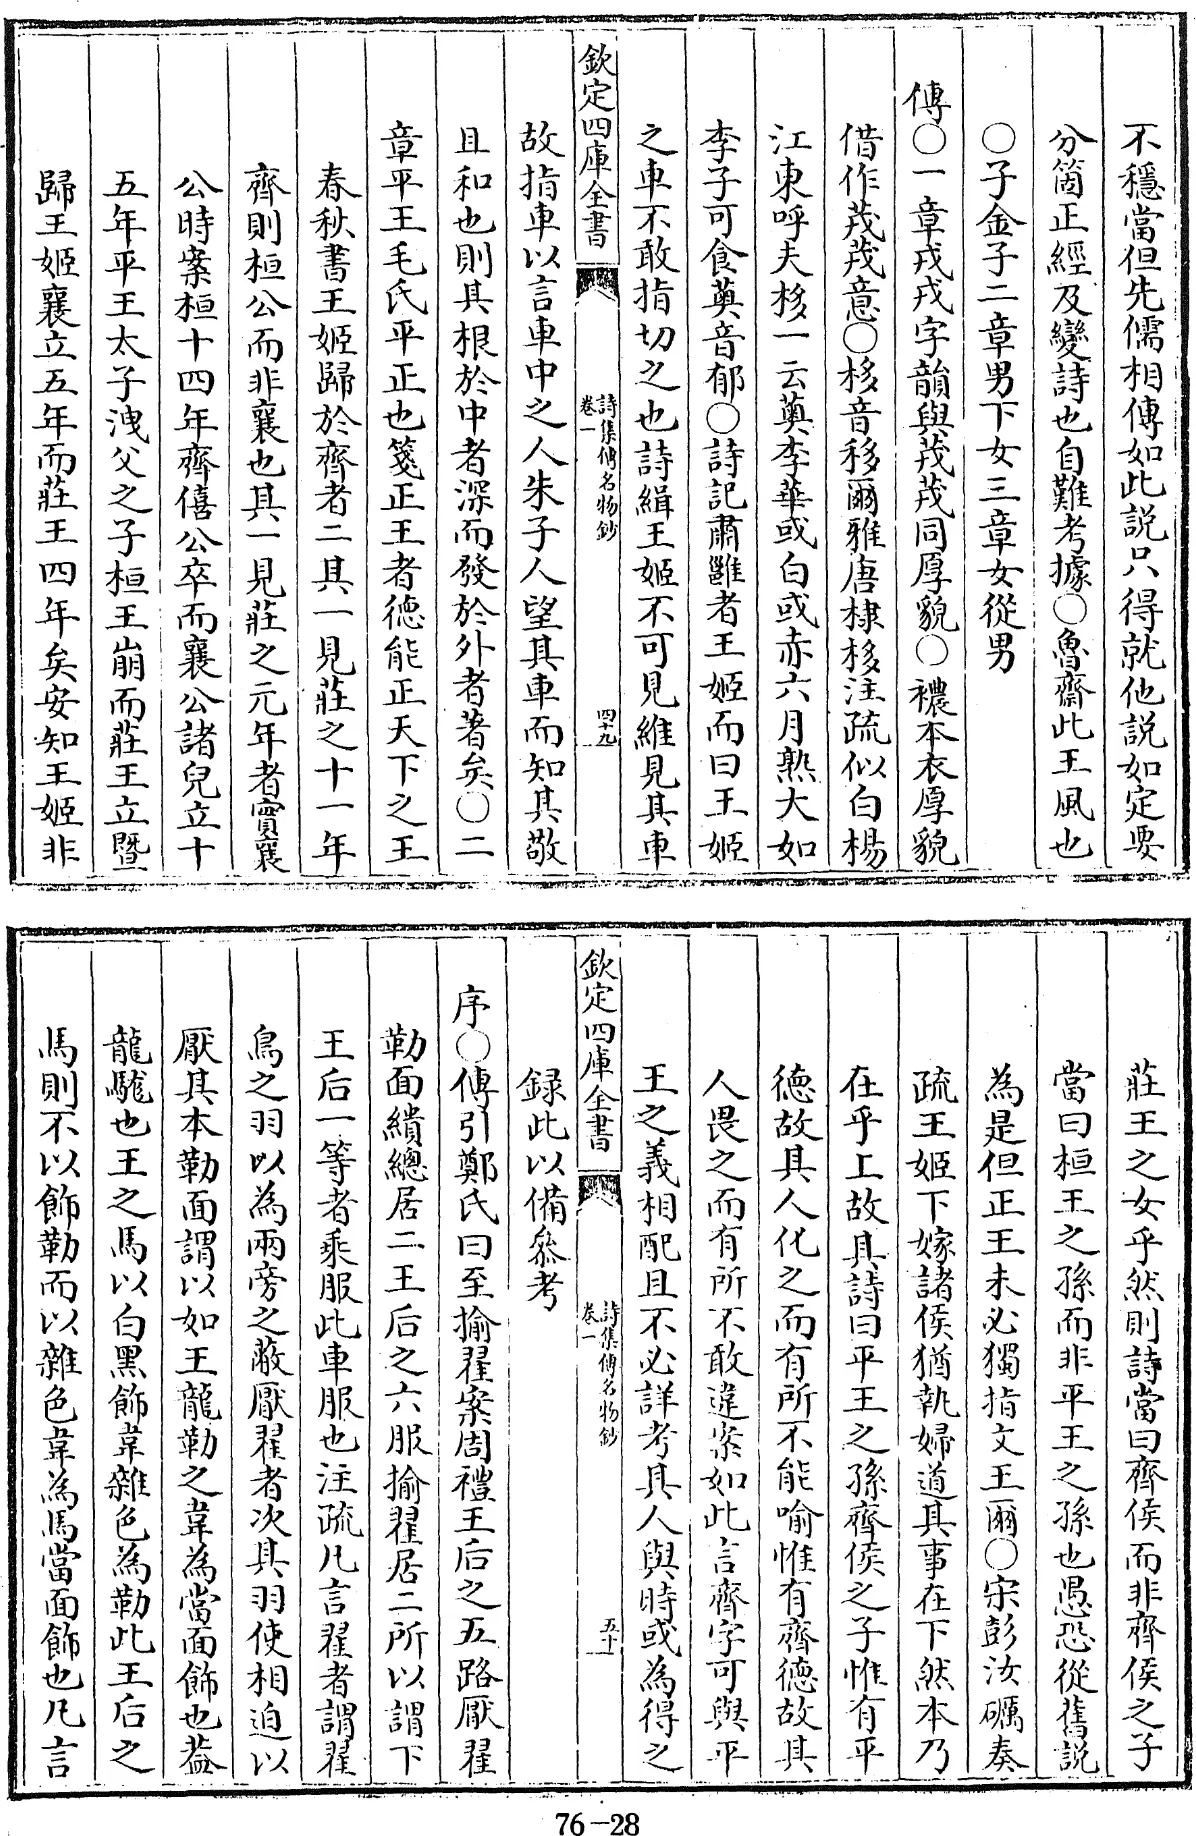 不穩當但先儒相傳如此説只得就他説如定要
分箇正經及變詩也自難考據○魯齋此王風也
○子金子二章男下女三章女從男
傳○一章戎戎字韻與茂茂同厚貌○襛本衣厚貌
借作茂茂意○栘音移爾雅唐棣栘注疏似白楊
江東呼夫栘一云薁李華或白或赤六月熟大如
李子可食薁音郁○詩記肅雝者王姬而曰王姬
之車不敢指切之也詩緝王姬不可見維見其車
欽定四庫全書
詩集傳名物鈔
卷一
四十九
故指車以言車中之人朱子人望其車而知其敬
且和也則其根於中者深而發於外者著矣○二
章平王毛氏平正也箋正王者德能正天下之王
春秋書王姬歸於齊者二其一見莊之十一年
齊則桓公而非襄也其一見莊之元年者實襄
公時案桓十四年齊僖公卒而襄公諸兒立十
五年平王太子洩父之子桓王崩而莊王立暨
歸王姬襄立五年而莊王四年矣安知王姬非
莊王之女乎然則詩當曰齊侯而非齊侯之子
當曰桓王之孫而非平王之孫也愚恐從舊説
為是但正王未必獨指文王爾○宋彭汝礪奏
疏王姬下嫁諸侯猶執婦道其事在下然本乃
在乎上故其詩曰平王之孫齊侯之子惟有平
德故其人化之而有所不能喻惟有齊德故其
人畏之而有所不敢違案如此言齊字可與平
王之義相配且不必詳考其人與時或為得之
欽定四庫全書
詩集傳名物鈔
卷一
五十
録此以備叅考
序○傳引鄭氏曰至揄翟案周禮王后之五路厭翟
勒面繢總居二王后之六服揄翟居二所以謂下
王后一等者乘服此車服也注疏凡言翟者謂翟
鳥之羽以為兩旁之蔽厭翟者次其羽使相迫以
厭其本勒面謂以如王龍勒之韋為當面飾也葢
龍駹也王之馬以白黑飾韋雜色為勒此王后之
馬則不以飾勒而以雜色韋為馬當面飾也凡言
76-28